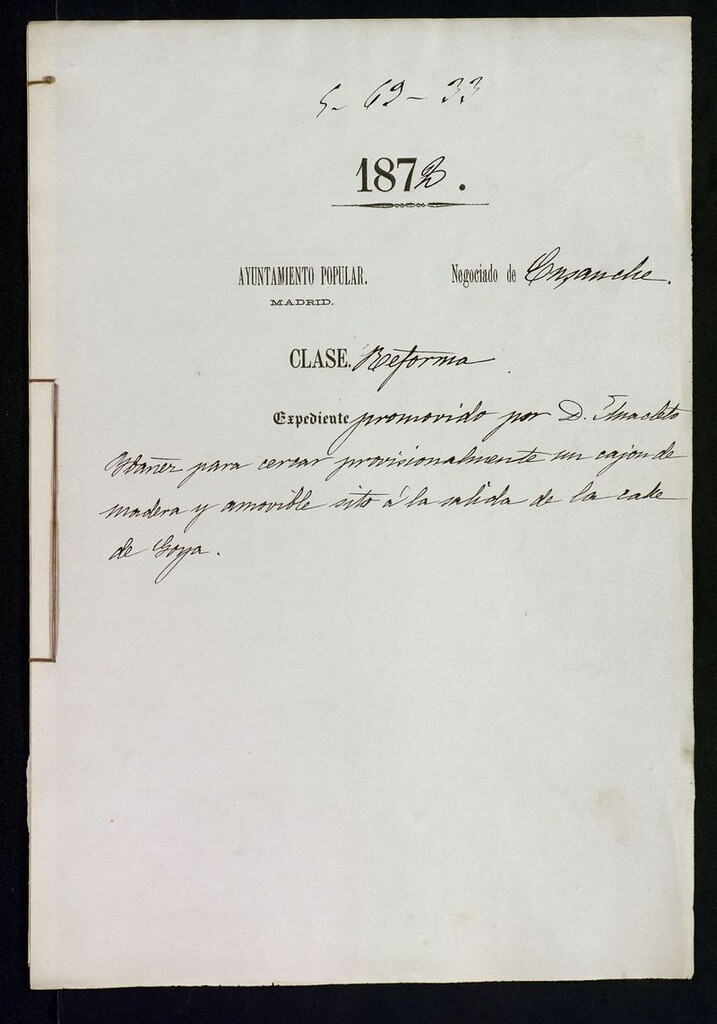 5-69-33
1872.
AYUNTAMIENTO POPULAR.
MADRID.
Negociado de Ensanche.
CLASE. Reforma
Expediente promovido por D. Anacleto
Ibañez para cercar provisionalmente un cajon de
madera y amovible sito á la salida de la calle
de Goya.